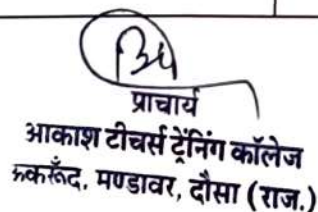 प्राचार्य
आकाश टीचर्स ट्रेनिंग कॉलेज
ऊकरूँद, मण्डावर, दौसा (राज.)